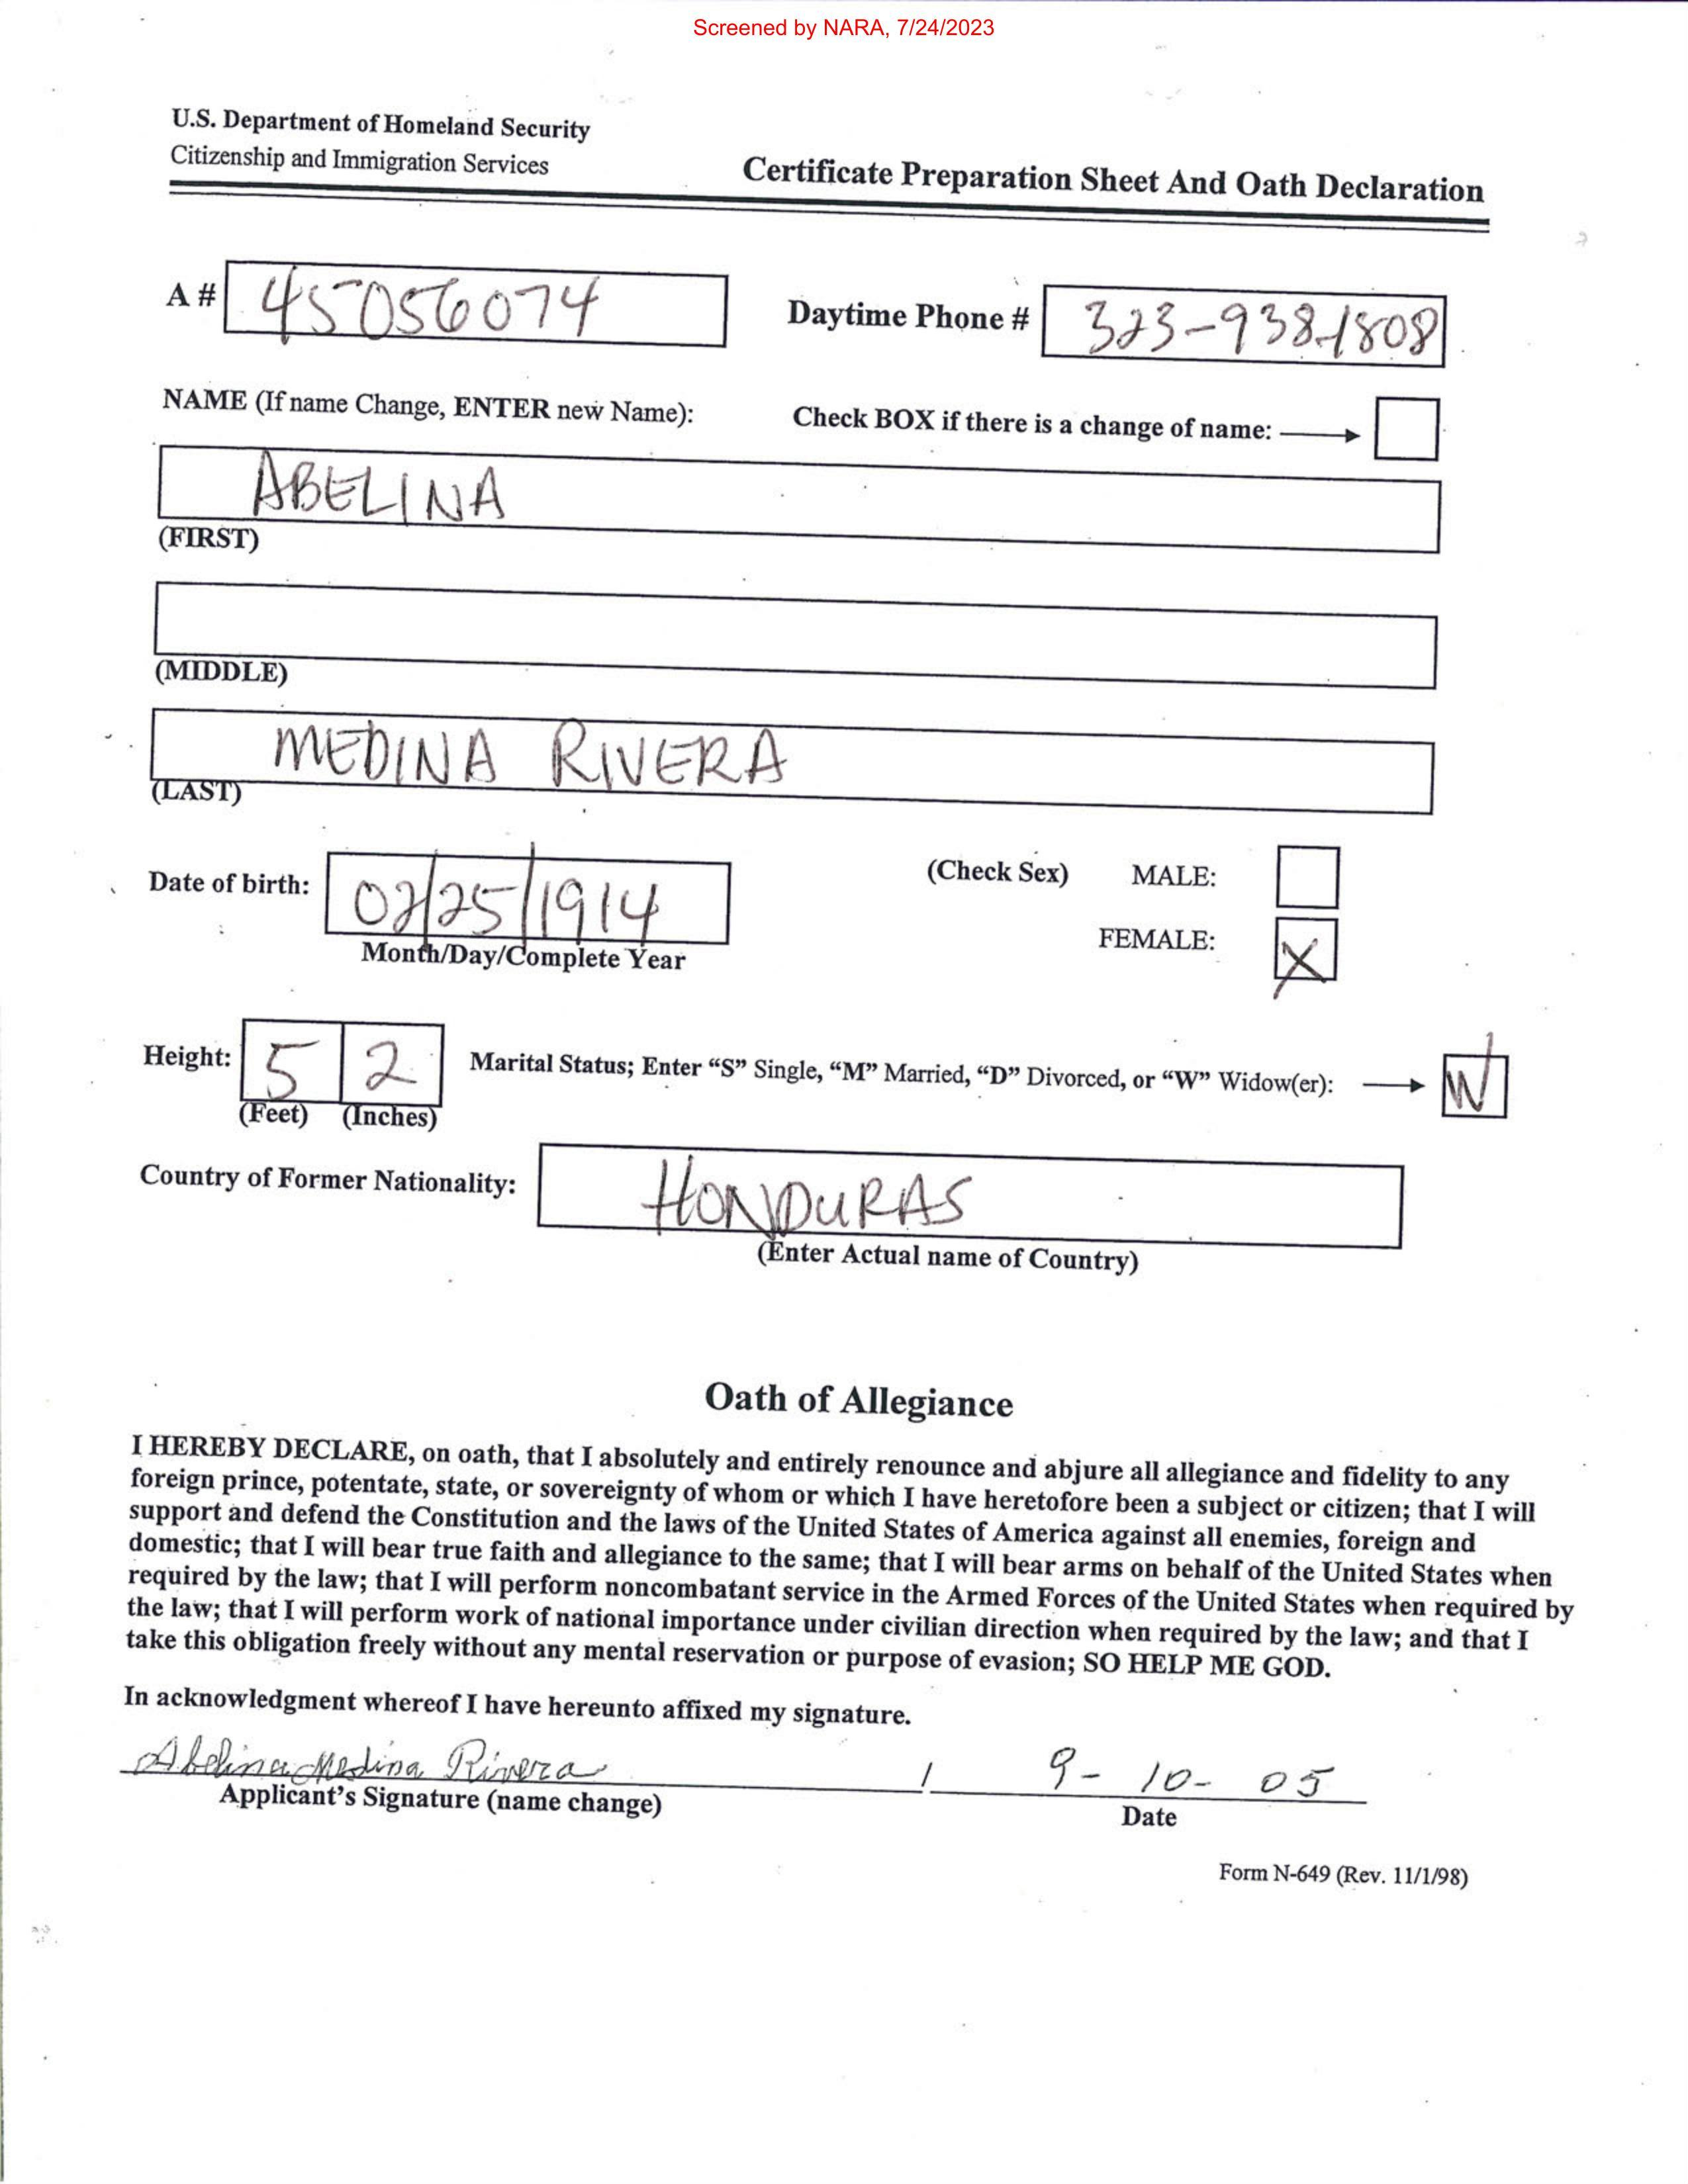 Screened by NARA, 7/24/2023
U.S. Department of Homeland Security
Citizenship and Immigration Services
Certificate Preparation Sheet And Oath Declaration
A # 45056074
Daytime Phone # 323-938-1808
NAME (If name Change, ENTER new Name):
Check BOX if there is a change of name:
ABELINA
(FIRST)
(MIDDLE)
MEDINA RIVERA
(LAST)
Date of birth: 02/25/1914
Month/Day/Complete Year
(Check Sex) MALE:
FEMALE: X
Height: 5 2
(Feet) (Inches)
Marital Status; Enter “S” Single, “M” Married, “D” Divorced, or “W” Widow(er): W
Country of Former Nationality: HONDURAS
(Enter Actual name of Country)
Oath of Allegiance
I HEREBY DECLARE, on oath, that I absolutely and entirely renounce and abjure all allegiance and fidelity to any
foreign prince, potentate, state, or sovereignty of whom or which I have heretofore been a subject or citizen; that I will
support and defend the Constitution and the laws of the United States of America against all enemies, foreign and
domestic; that I will bear true faith and allegiance to the same; that I will bear arms on behalf of the United States when
required by the law; that I will perform noncombatant service in the Armed Forces of the United States when required by
the law; that I will perform work of national importance under civilian direction when required by the law; and that I
take this obligation freely without any mental reservation or purpose of evasion; SO HELP ME GOD.
In acknowledgment whereof I have hereunto affixed my signature.
Abelina Medina Rivera / 9-10-05
Applicant’s Signature (name change)
Date
Form N-649 (Rev. 11/1/98)